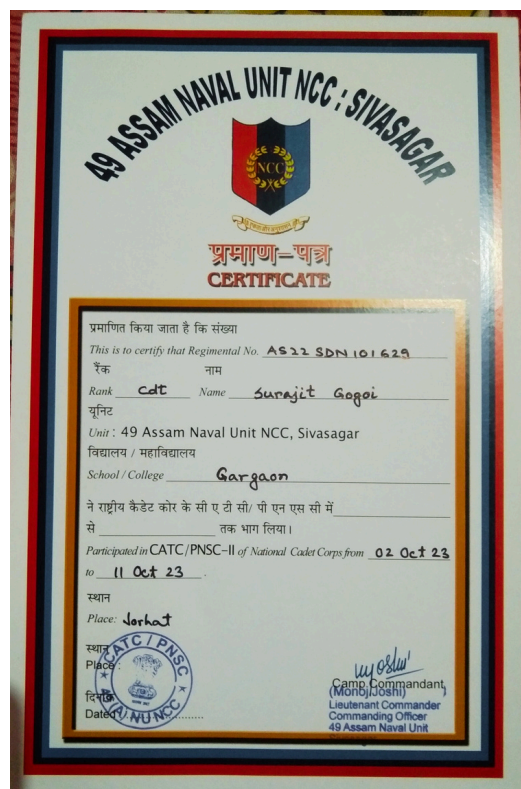 49 ASSAM NAVAL UNIT NCC : SIVASAGAR
NCC
प्रमाण-पत्र
CERTIFICATE
प्रमाणित किया जाता है कि संख्या
This is to certify that Regimental No. AS22 SDN 101629
रैंक नाम
Rank Cdt Name Surajit Gogoi
यूनिट
Unit : 49 Assam Naval Unit NCC, Sivasagar
विद्यालय / महाविद्यालय
School / College Gargaon
ने राष्ट्रीय कैडेट कोर के सी ए टी सी/ पी एन एस सी में
से तक भाग लिया।
Participated in CATC/PNSC-II of National Cadet Corps from 02 Oct 23
to 11 Oct 23 .
स्थान
Place: Jorhat
स्थान
Place :
CATC / PNSC
NU NCC
Camp Commandant
(Monoj Joshi)
Lieutenant Commander
दिनांक
Commanding Officer
Dated
49 Assam Naval Unit